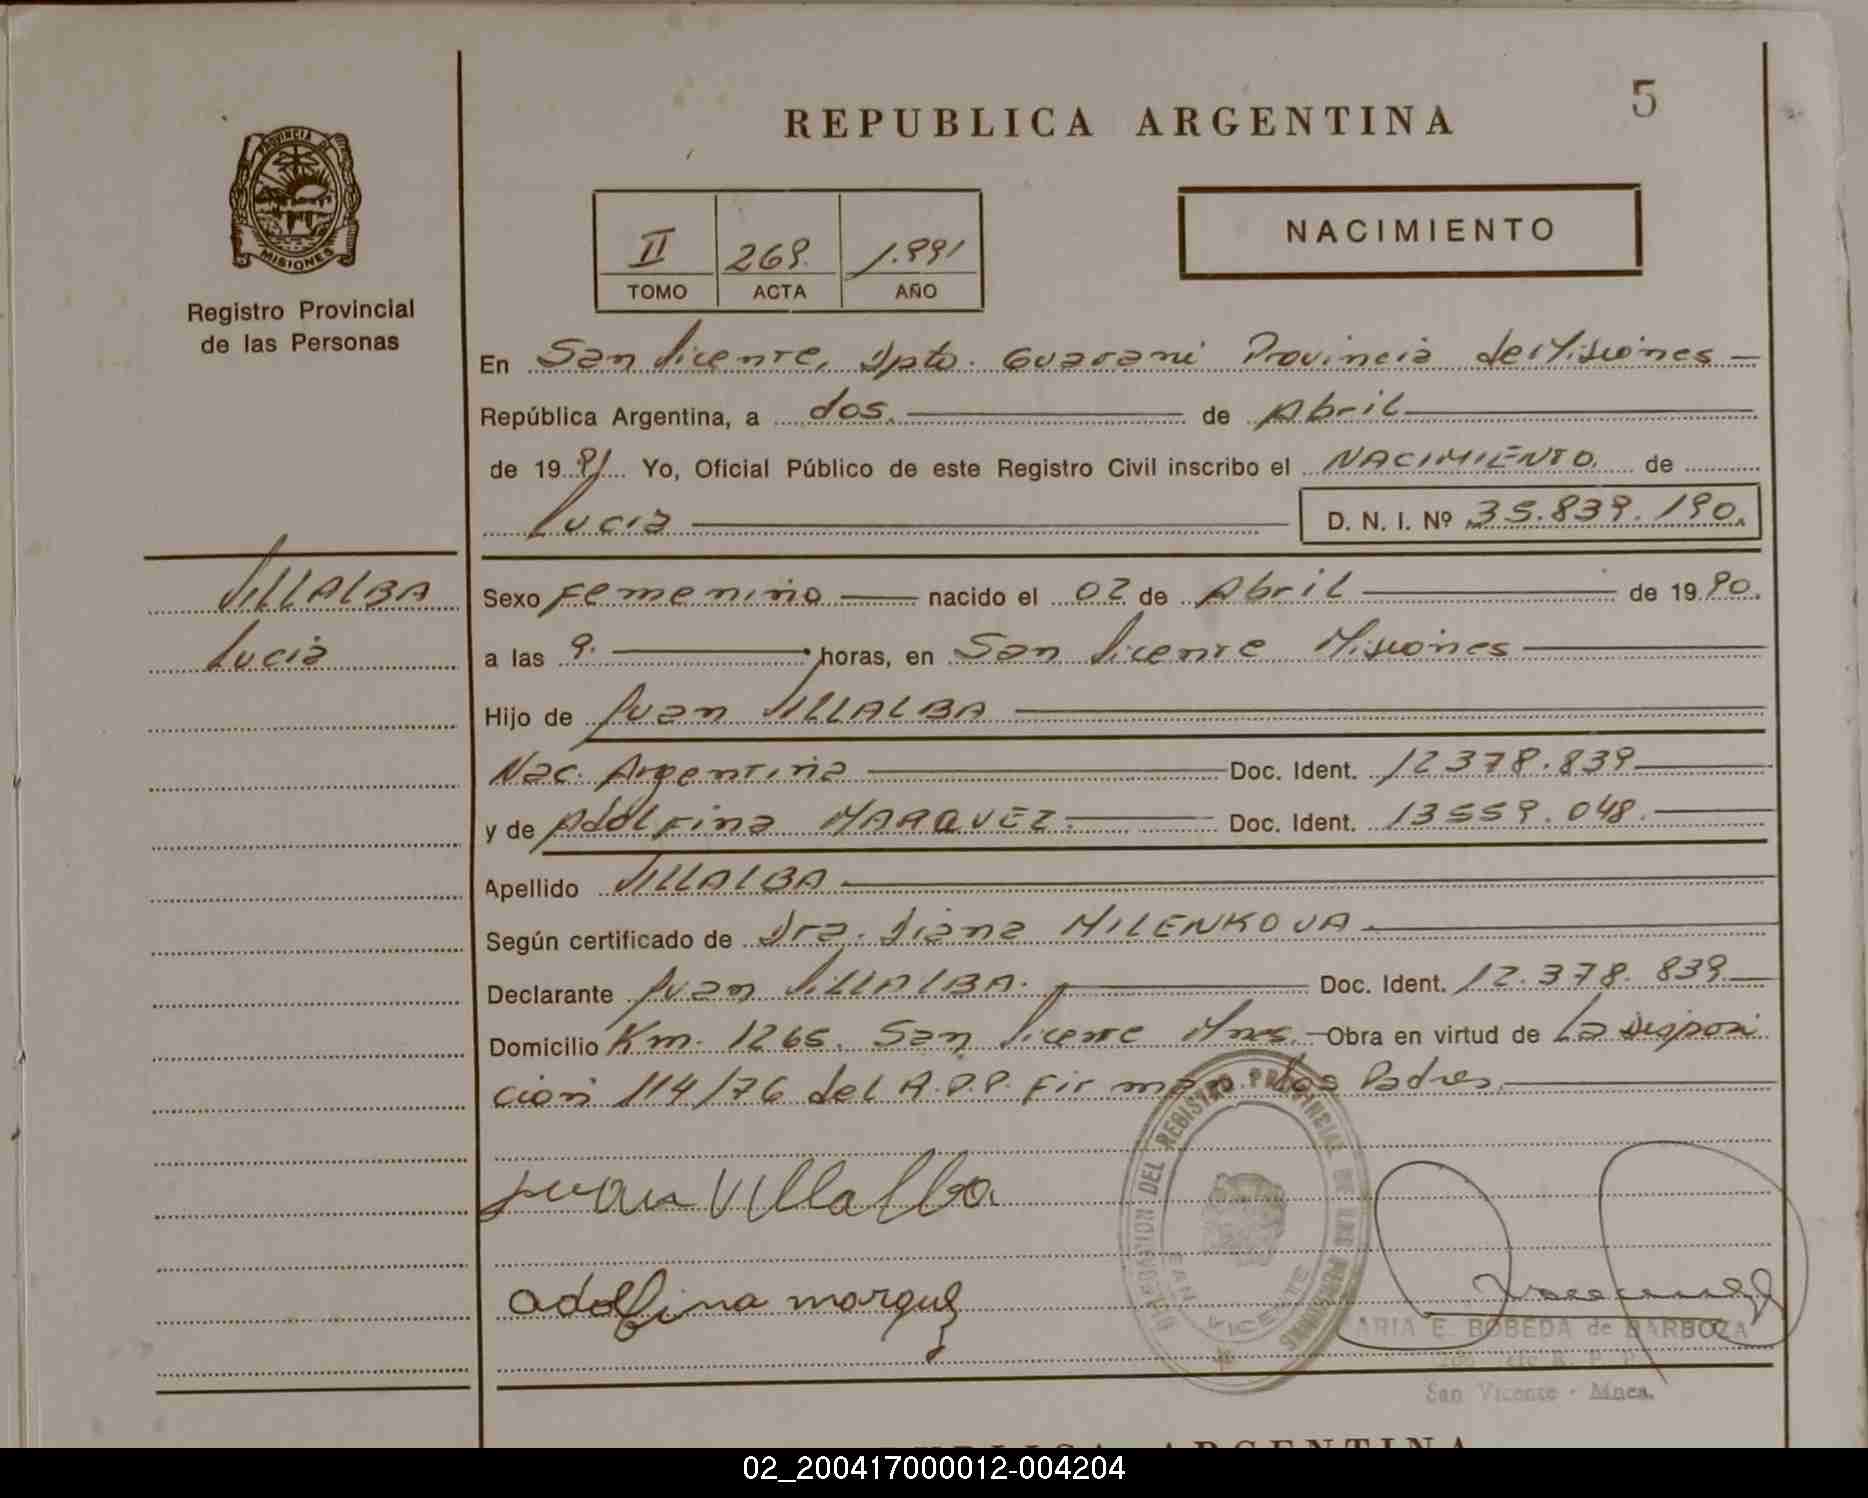 5
REPUBLICA ARGENTINA
PROVINCIA DE
MISIONES
Registro Provincial
de las Personas
NACIMIENTO
II 269. 1.991
TOMO ACTA AÑO
En San Vicente, Dpto. Guarani Provincia de Misiones
República Argentina, a dos. de Abril
de 1991 Yo, Oficial Público de este Registro Civil inscribo el NACIMIENTO. de
Lucia D. N. I. Nº 35.839.190.
VILLALBA
Lucia
Sexo Femenino nacido el 02 de Abril de 1990.
a las 9. horas, en San Vicente Misiones
Hijo de Juan VILLALBA
Nac. Argentina Doc. Ident. 12378.839
y de Adolfina MARQUEZ. Doc. Ident. 13559.048.
Apellido VILLALBA
Según certificado de Dra. Diana MILENKOVA.
Declarante Juan VILLALBA. Doc. Ident. 12.378.839
Domicilio Km. 1265. San Vicente Mnes. Obra en virtud de La disposi
cion 114/76 del R.P.P. Firman los Padres.
Juan Villalba
adolfina marquez
DELEGACION DEL REGISTRO PROVINCIAL DE LAS PERSONAS
SAN VICENTE
MARIA E. BOBEDA de BARBOZA
R. P. P.
San Vicente - Mnes.
REPUBLICA ARGENTINA
02_200417000012-004204